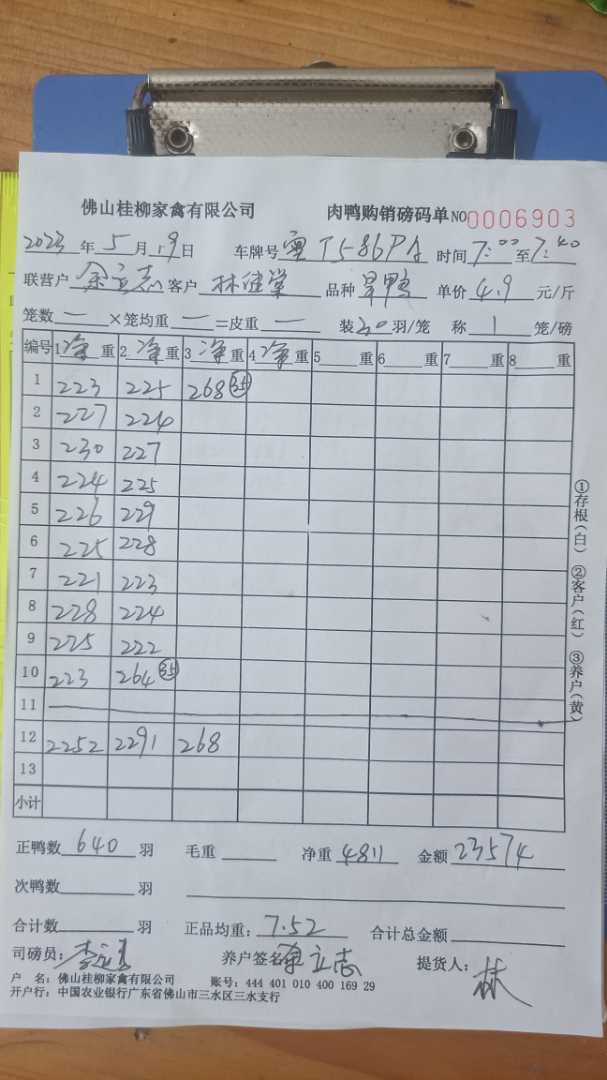 佛山桂柳家禽有限公司 肉鸭购销磅码单 NO 0006903
2023年5月19日 车牌号 粤T586PA 时间7:00至7:40
联营户 余立志 客户 林 品种 旱鸭 单价4.9元/斤
笼数 — ×笼均重 — =皮重 — 装30羽/笼 称1笼/磅
编号 1净重 2净重 3净重 4净重 5重 6重 7重 8重
1 223 225 268 35
2 227 224
3 230 227
4 224 225
5 226 229
6 225 228
7 221 223
8 228 224
9 225 222
10 223 264 35
11
12 2252 2291 268
13
小计
正鸭数 640 羽 毛重 净重 4811 金额 23574
次鸭数 羽
合计数 羽 正品均重: 7.52 合计总金额
司磅员: 李 养户签名: 余立志 提货人: 林
户 名: 佛山桂柳家禽有限公司 账号: 444 401 010 400 169 29
开户行: 中国农业银行广东省佛山市三水区三水支行
①存根(白) ②客户(红) ③养户(黄)